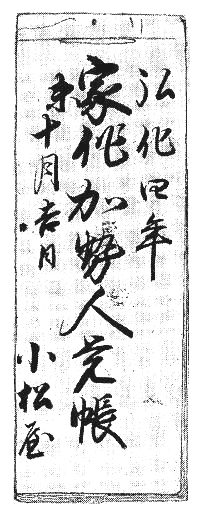 弘化四年
家作加勢人覚帳
未十月吉日
小松屋